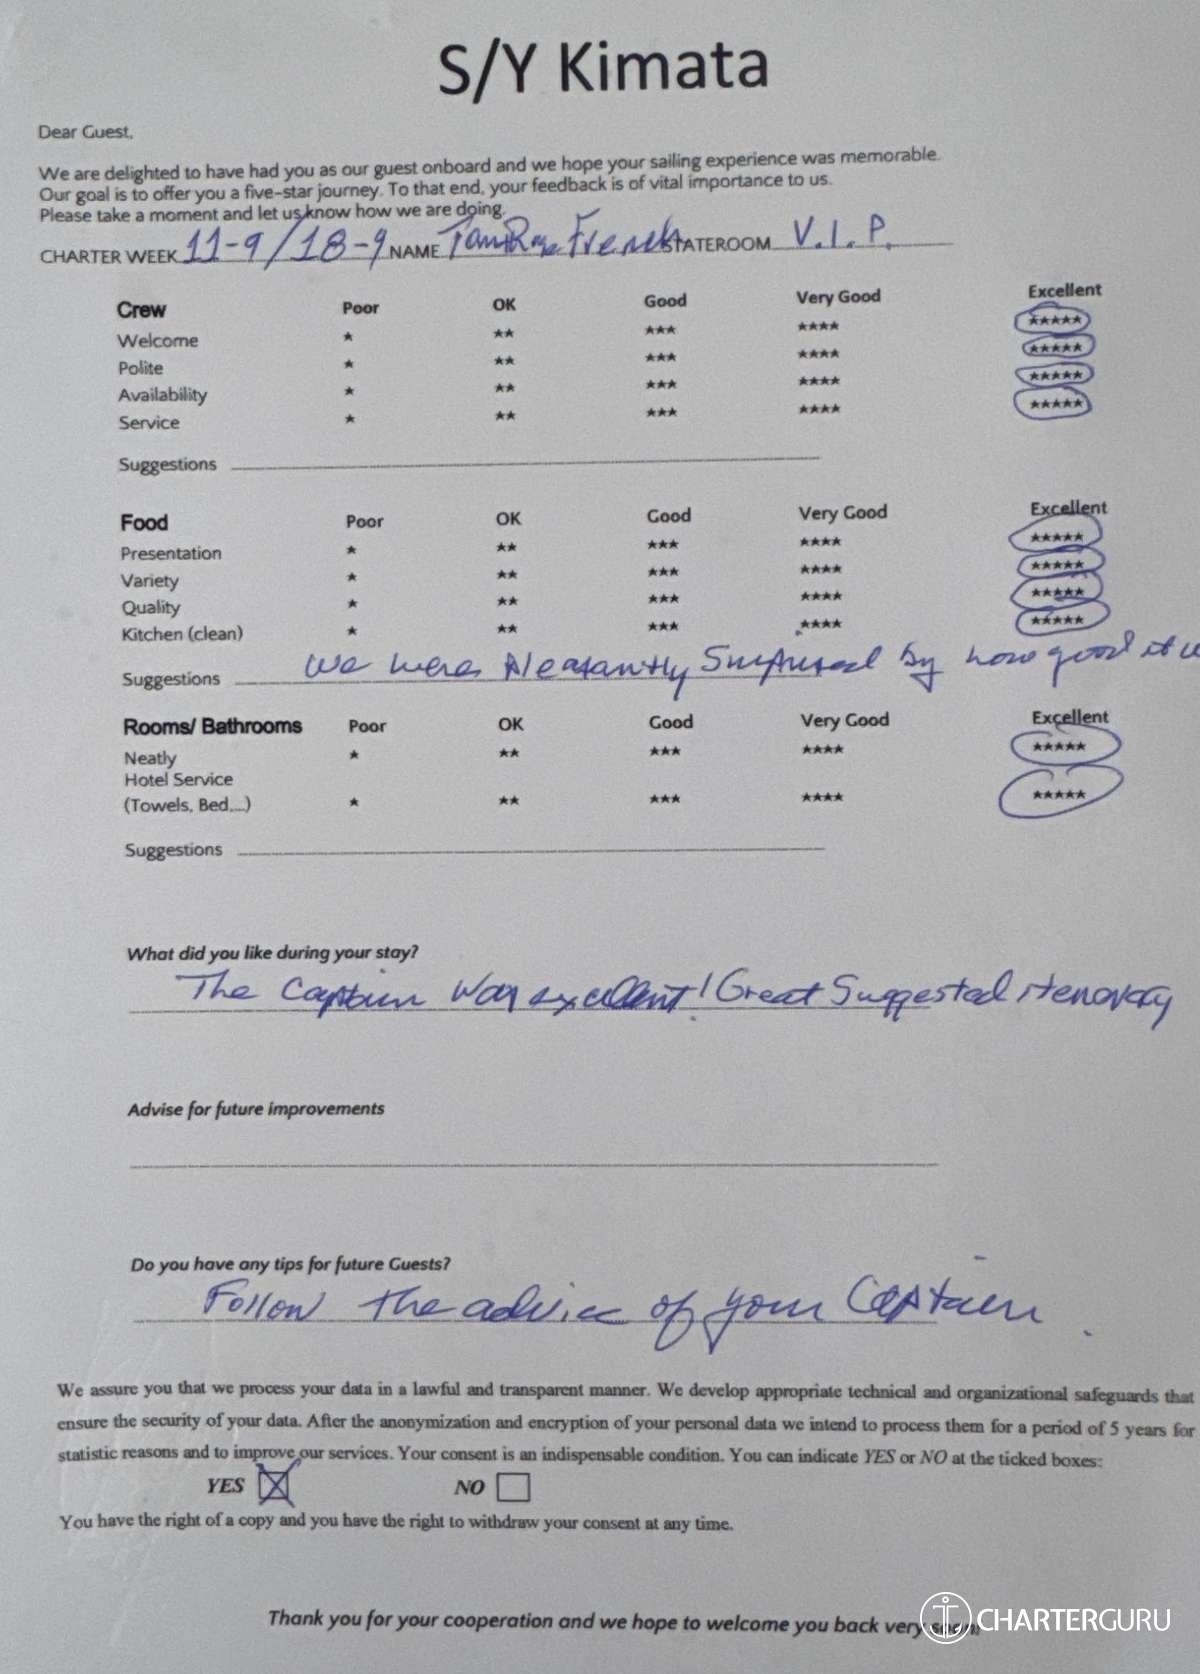 S/Y Kimata
Dear Guest,
We are delighted to have had you as our guest onboard and we hope your sailing experience was memorable.
Our goal is to offer you a five-star journey. To that end, your feedback is of vital importance to us.
Please take a moment and let us know how we are doing.
CHARTER WEEK 11-9/18-9 NAME French STATEROOM V.I.P.
Crew Poor OK Good Very Good Excellent
Welcome * ** *** **** *****
Polite * ** *** **** *****
Availability * ** *** **** *****
Service * ** *** **** *****
Suggestions
Food Poor OK Good Very Good Excellent
Presentation * ** *** **** *****
Variety * ** *** **** *****
Quality * ** *** **** *****
Kitchen (clean) * ** *** **** *****
Suggestions We were pleasantly surprised by how good it w
Rooms/ Bathrooms Poor OK Good Very Good Excellent
Neatly * ** *** **** *****
Hotel Service
(Towels, Bed,...) * ** *** **** *****
Suggestions
What did you like during your stay?
The Captain was excellent! Great Suggested itenorary
Advise for future improvements
Do you have any tips for future Guests?
Follow the advice of your Captain.
We assure you that we process your data in a lawful and transparent manner. We develop appropriate technical and organizational safeguards that
ensure the security of your data. After the anonymization and encryption of your personal data we intend to process them for a period of 5 years for
statistic reasons and to improve our services. Your consent is an indispensable condition. You can indicate YES or NO at the ticked boxes:
YES NO
You have the right of a copy and you have the right to withdraw your consent at any time.
Thank you for your cooperation and we hope to welcome you back very soon!
CHARTERGURU